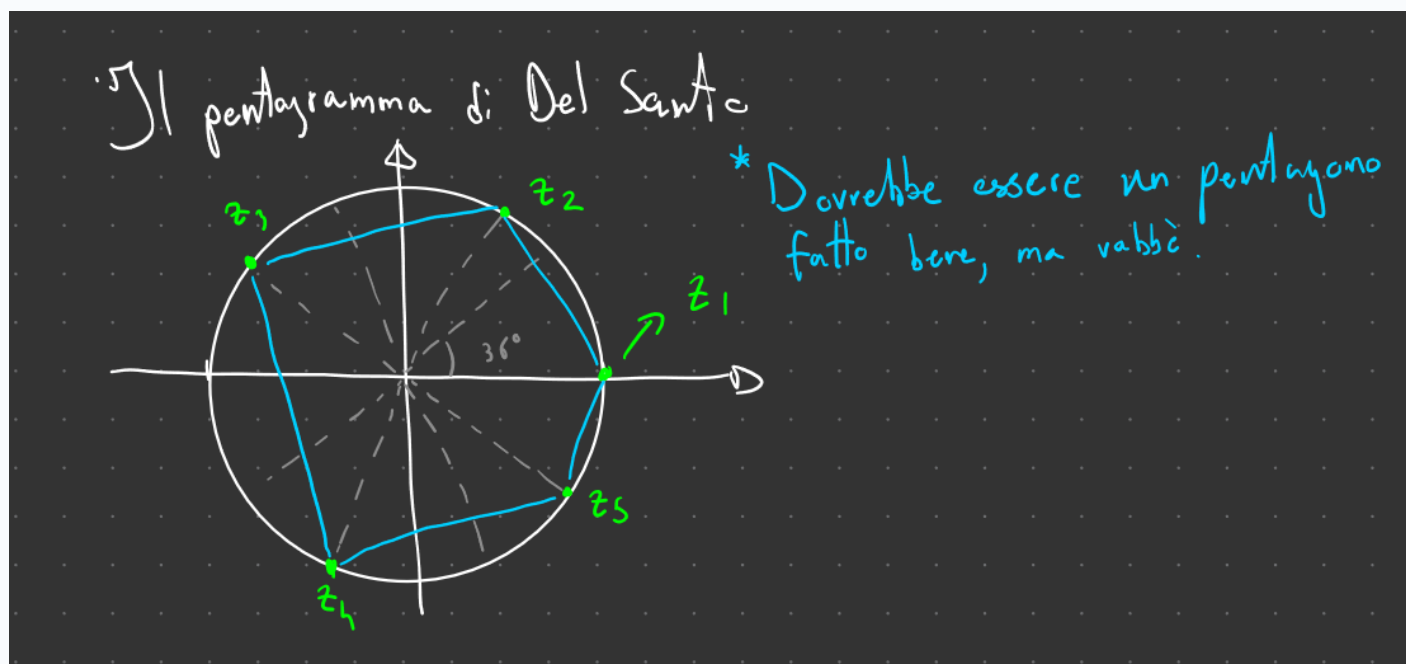 Il pentagramma di Del Santo
* Dovrebbe essere un pentagono
fatto bene, ma vabbè.
z3
z2
z1
36°
z5
z4